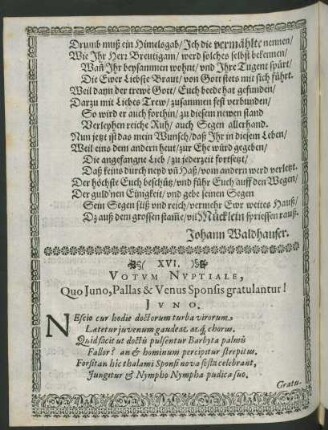 Drumb muß ein Himelsgab/ Ich die vermählte nennen/
Wie Ihr Herr Breutigam/ werd solches selbst bekennen/
Wañ Ihr beysammen wohnt/ vnd Ihre Tugent spürt/
Die Ewer Liebste Braut/ von Gott stets mit sich führt.
Weil dann der trewe Gott/ Euch beede hat gefunden/
Darzu mit Liebes Trew/ zusammen fest verbunden/
So wird er auch forthin/ zu diesem newen stand
Verleyhen reiche Ruh/ auch Segen allerhand.
Nun jetzt ist das mein Wunsch/ daß Ihr in diesem Leben/
Weil eins dem andern heut/ zur Ehe würd gegeben/
Die angefangne Lieb/ zu jederzeit fortsetzt/
Daß keins durch neyd vñ Haß/ vom andern werd verletzt.
Der höchste Euch beschütz/ vnd führ Euch auff den Wegen/
Der guld'nen Einigkeit/ vnd gebe seinen Segen
Sein Segen fliß vnd reich/ vermehr Ewr wertes Hauß/
Dz auß dem grossen stam̃e/ viel Mücklein spriessen rauß.
Johann Waldhauser.
XVI.
VOTVM NVPTIALE,
Quo Juno, Pallas & Venus Sponsis gratulantur!
JVNO.
NEscio cur hodie doctorum turba virorum,
Lætetur juvenum gaudeat atq; chorus.
Quid facit ut doctũ pulsentur Barbyta palmũ
Fallor? an & hominum percipitur strepitus,
Forsitan hic thalami Sponsi nova festa celebrant,
Jungitur & Nympho Nympha pudica suo.
Gratu-